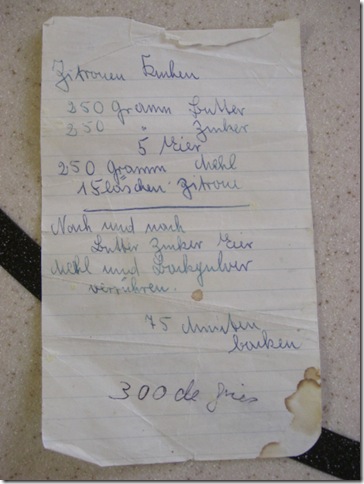 Zitronen Kuchen
250 gramm Butter
250 " Zucker
5 Eier
250 gramm Mehl
1 Fläschen Zitrone
Nach und nach
Butter Zucker Eier
Mehl und Backpulver
verrühren.
75 Minuten
backen
300 de gries